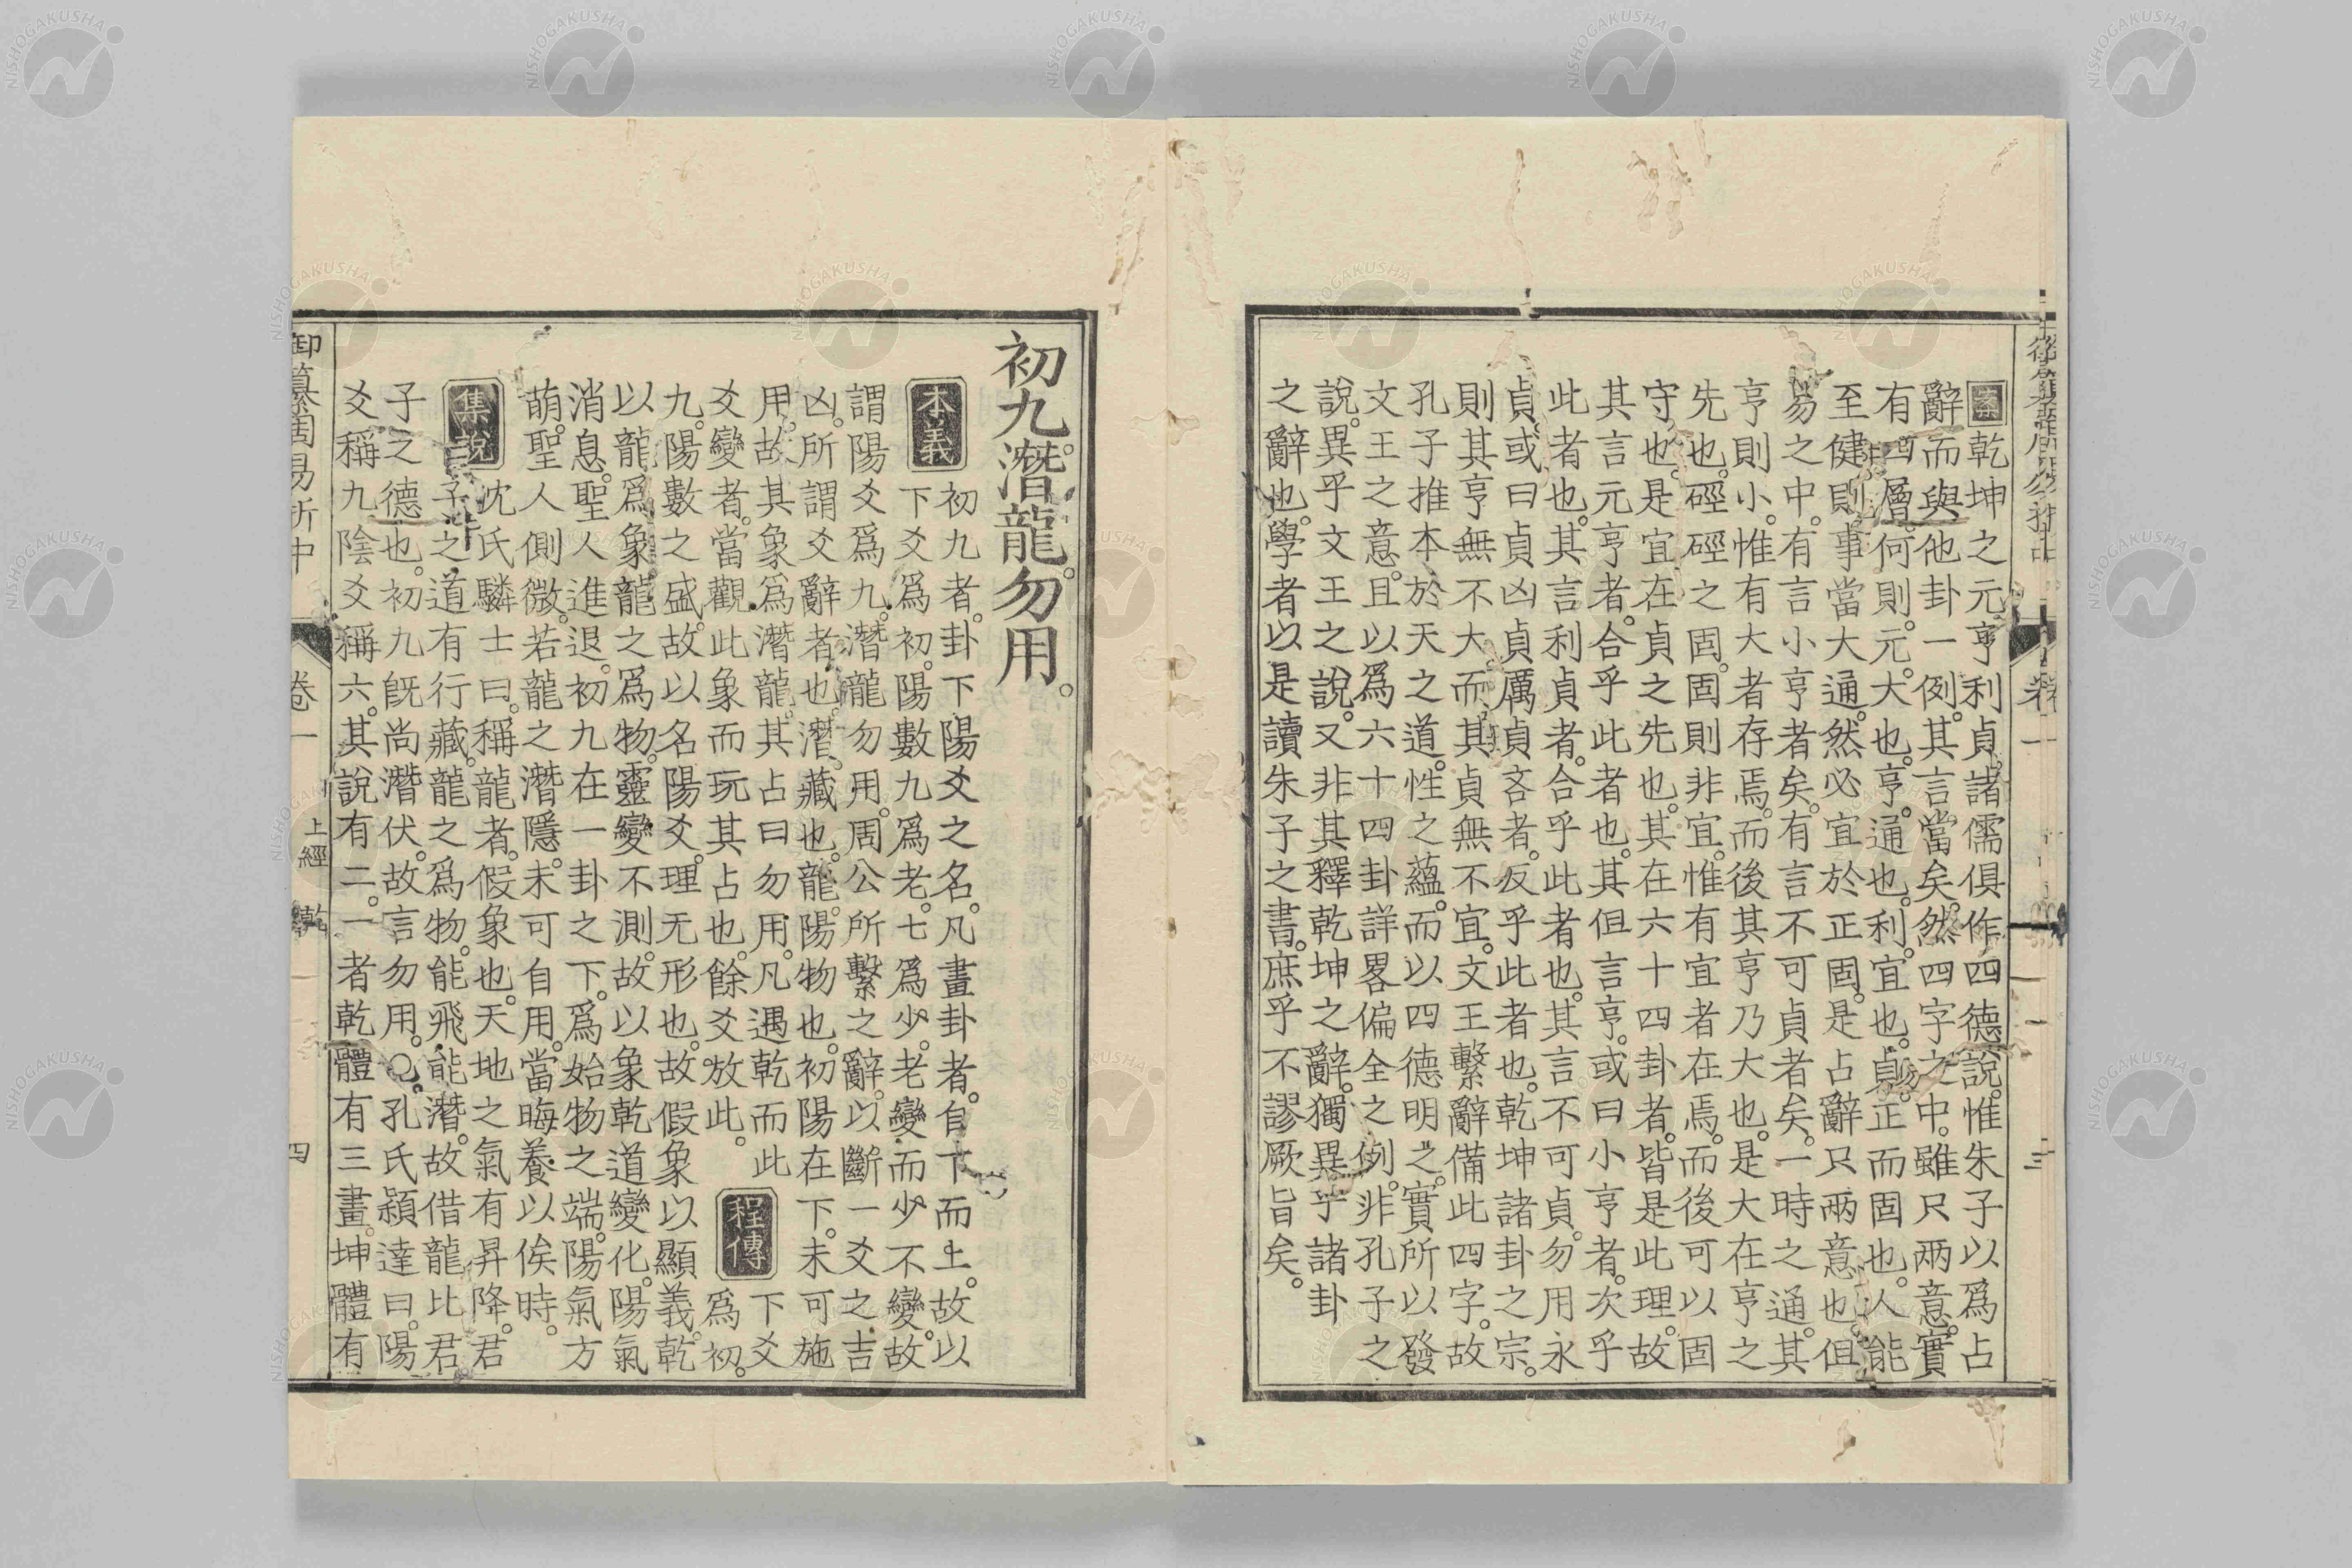 御纂周易折中 卷一
案乾坤之元亨利貞。諸儒俱作四德說。惟朱子以爲占
辭而與他卦一例。其言當矣。然四字之中。雖只兩意。實
有四層。何則。元。大也。亨。通也。利。宜也。貞。正而固也。人能
至健。則事當大通。然必宜於正固。是占辭只兩意也。但
易之中。有言小亨者矣。有言不可貞者矣。一時之通。其
亨則小。惟有大者存焉。而後其亨乃大也。是大在亨之
先也。硜硜之固。固則非宜。惟有宜者在焉。而後可以固
守也。是宜在貞之先也。其在六十四卦者。皆是此理。故
其言元亨者。合乎此者也。其但言亨。或曰小亨者。次乎
此者也。其言利貞者。合乎此者也。其言不可貞。勿用永
貞。或曰貞凶貞厲貞吝者。反乎此者也。乾坤諸卦之宗。
則其亨無不大。而其貞無不宜。文王繫辭備此四字。故
孔子推本於天之道。性之蘊。而以四德明之。實所以發
文王之意。且以爲六十四卦詳畧偏全之例。非孔子之
說。異乎文王之說。又非其釋乾坤之辭。獨異乎諸卦
之辭也。學者以是讀朱子之書。庶乎不謬厥旨矣。
初九。潛龍。勿用。
本義 初九者。卦下陽爻之名。凡畫卦者。自下而上。故以
下爻爲初。陽數九爲老。七爲少。老變而少不變。故
謂陽爻爲九。潛龍勿用。周公所繫之辭。以斷一爻之吉
凶。所謂爻辭者也。潛。藏也。龍。陽物也。初陽在下。未可施
用。故其象爲潛龍。其占曰勿用。凡遇乾而此
爻變者。當觀此象而玩其占也。餘爻放此。 程傳 下爻
爲初。
九。陽數之盛。故以名陽爻。理无形也。故假象以顯義。乾
以龍爲象。龍之爲物。靈變不測。故以象乾道變化。陽氣
消息。聖人進退。初九在一卦之下。爲始物之端。陽氣方
萌。聖人側微。若龍之潛隱。未可自用。當晦養以俟時。
集說 沈氏驎士曰。稱龍者。假象也。天地之氣有昇降。君
子之道有行藏。龍之爲物。能飛能潛。故借龍比君
子之德也。初九旣尚潛伏。故言勿用。○孔氏穎達曰。陽
爻稱九陰爻稱六。其說有二。一者乾體有三畫。坤體有
御纂周易折中 卷一 上經 乾 四